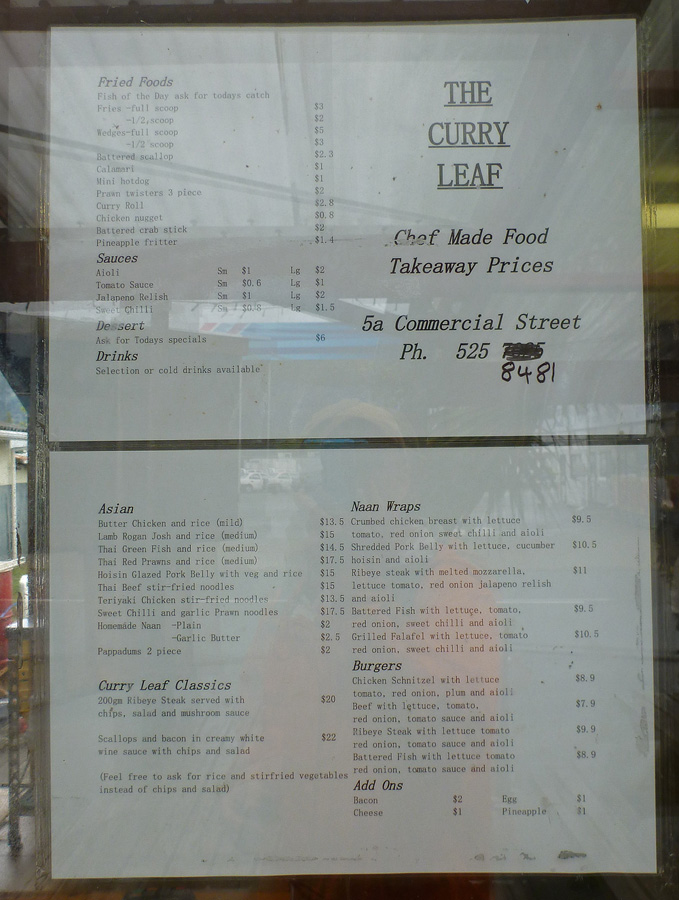 Fried Foods
Fish of the Day ask for todays catch
Fries -full scoop $3
-1/2 scoop $2
Wedges-full scoop $5
-1/2 scoop $3
Battered scallop $2.3
Calamari $1
Mini hotdog $1
Prawn twisters 3 piece $2
Curry Roll $2.8
Chicken nugget $0.8
Battered crab stick $2
Pineapple fritter $1.4
Sauces
Aioli Sm $1 Lg $2
Tomato Sauce Sm $0.6 Lg $1
Jalapeno Relish Sm $1 Lg $2
Sweet Chilli Sm $0.8 Lg $1.5
Dessert
Ask for Todays specials $6
Drinks
Selection or cold drinks available
THE
CURRY
LEAF
Chef Made Food
Takeaway Prices
5a Commercial Street
Ph. 525
8481
Asian
Butter Chicken and rice (mild) $13.5
Lamb Rogan Josh and rice (medium) $15
Thai Green Fish and rice (medium) $14.5
Thai Red Prawns and rice (medium) $17.5
Hoisin Glazed Pork Belly with veg and rice $15
Thai Beef stir-fried noodles $15
Teriyaki Chicken stir-fried noodles $13.5
Sweet Chilli and garlic Prawn noodles $17.5
Homemade Naan -Plain $2
-Garlic Butter $2.5
Pappadums 2 piece $2
Curry Leaf Classics
200gm Ribeye Steak served with $20
chips, salad and mushroom sauce
Scallops and bacon in creamy white $22
wine sauce with chips and salad
(Feel free to ask for rice and stirfried vegetables
instead of chips and salad)
Naan Wraps
Crumbed chicken breast with lettuce $9.5
tomato, red onion sweet chilli and aioli
Shredded Pork Belly with lettuce, cucumber $10.5
hoisin and aioli
Ribeye steak with melted mozzarella, $11
lettuce tomato, red onion jalapeno relish
and aioli
Battered Fish with lettuce, tomato, $9.5
red onion, sweet chilli and aioli
Grilled Falafel with lettuce, tomato $10.5
red onion, sweet chilli and aioli
Burgers
Chicken Schnitzel with lettuce $8.9
tomato, red onion, plum and aioli
Beef with lettuce, tomato, $7.9
red onion, tomato sauce and aioli
Ribeye Steak with lettuce tomato $9.9
red onion, tomato sauce and aioli
Battered Fish with lettuce tomato $8.9
red onion, tomato sauce and aioli
Add Ons
Bacon $2 Egg $1
Cheese $1 Pineapple $1